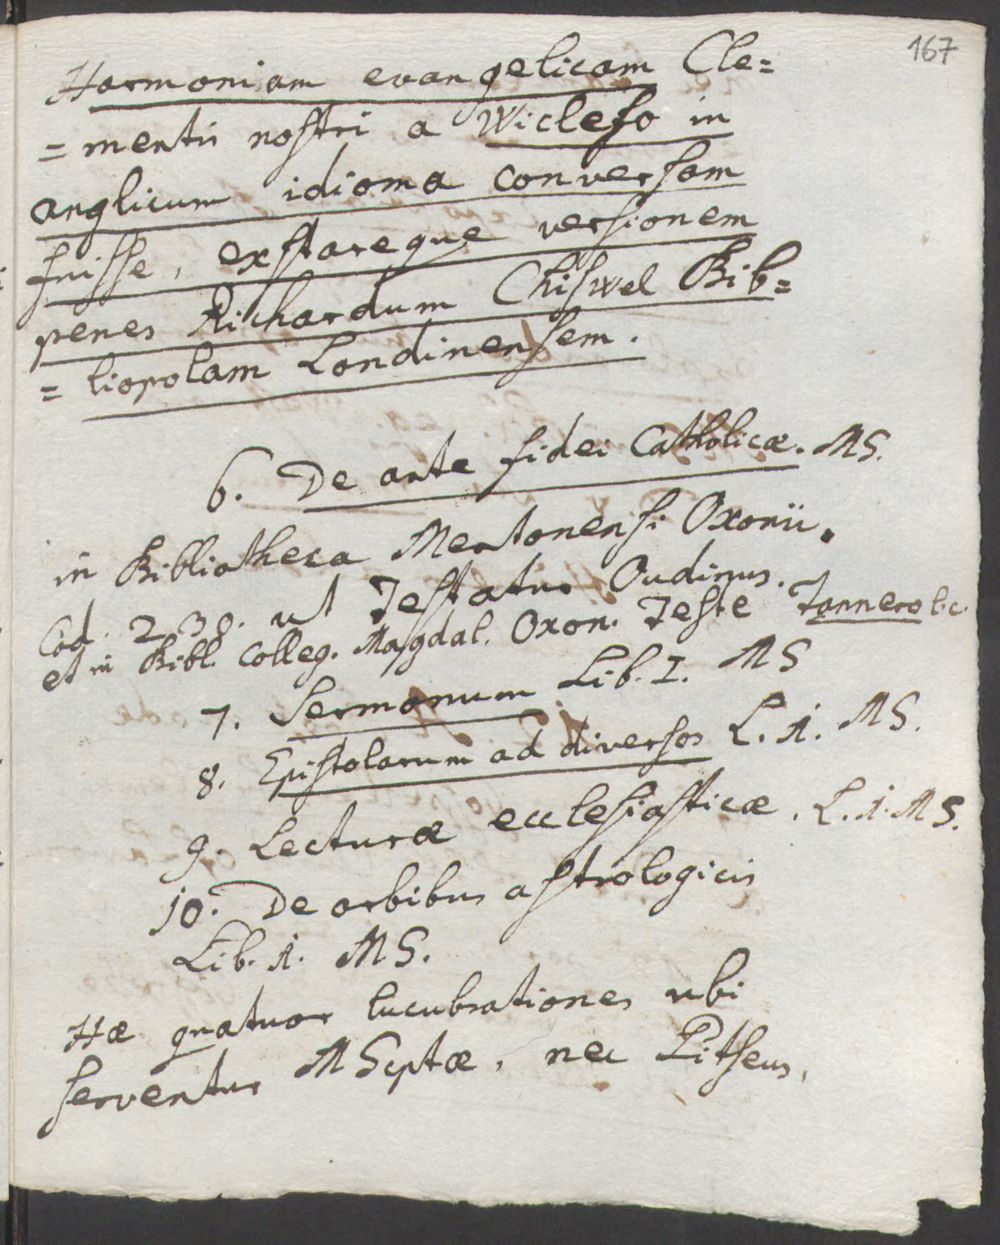 167
Harmoniam evangelicam Cle=
=mentis nostri a Wiclefo in
anglicum idioma conversam
fuisse, exstareque versionem
penes Richardum Chiswel Bib=
=liopolam Londinensem.
6. De arte fidei Catholicæ. MS.
in Bibliotheca Mertonensi Oxonii.
Cod. 230. ut Testatur Oudinus.
et in Bibl. Colleg. Magdal. Oxon. Teste Tannero l. c.
7. Sermonum Lib. I. MS
8. Epistolarum ad diversos L. 1. MS.
9. Lecturæ ecclesiasticæ. L. 1. MS.
10. De orbibus astrologicis
Lib. 1. MS.
Hæ quatuor lucubrationes ubi
serventur MSptæ, nec Pitseus,